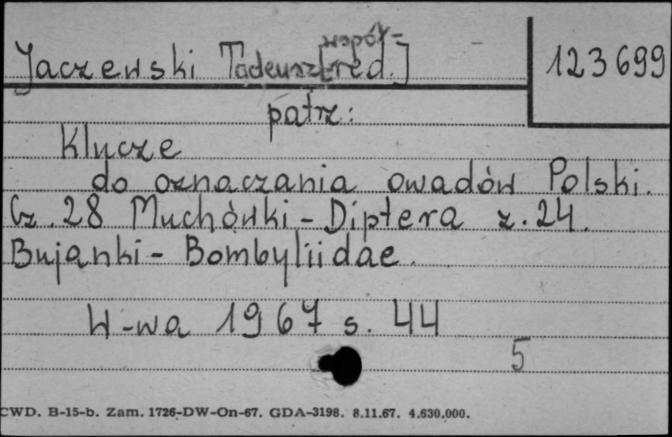 współ-
Jaczewski Tadeusz [red.]
123699
patrz:
Klucze
do oznaczania owadów Polski.
Cz. 28 Muchówki - Diptera z. 24.
Bujanki - Bombyliidae.
W-wa 1967 s. 44
5
CWD. B-15-b. Zam. 1726-DW-On-67. GDA-3198. 8.11.67. 4.630.000.